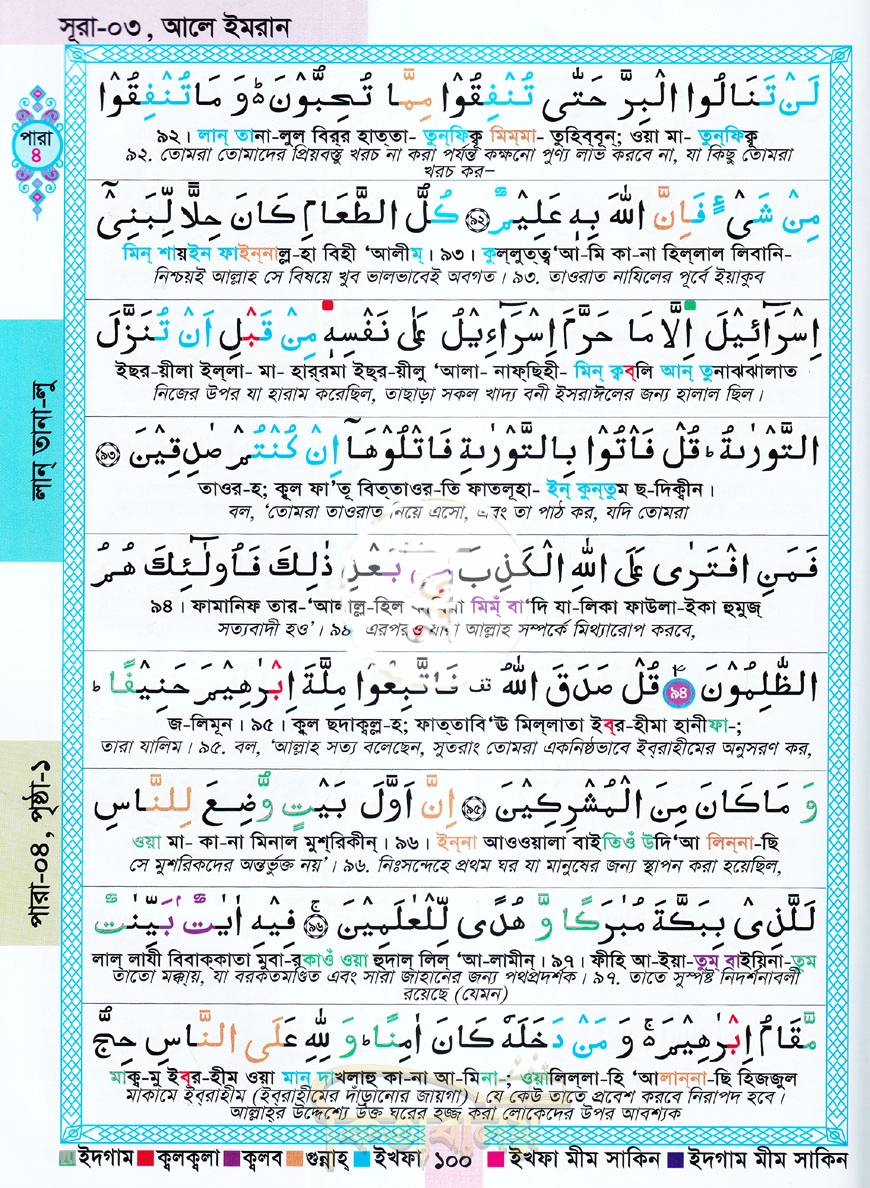 সূরা-০৩, আলে ইমরান
পারা
৪
লান্ তানা-লু
পারা-০৪, পৃষ্ঠা-১
لَنْ تَنَالُوا الْبِرَّ حَتّٰى تُنْفِقُوْا مِمَّا تُحِبُّوْنَ ؕ وَ مَا تُنْفِقُوْا
৯২। লান্ তানা-লুল বির্‌র হাত্তা- তুন্‌ফিক্বূ মিম্‌মা- তুহিব্বূন; ওয়া মা- তুন্‌ফিক্বূ
৯২. তোমরা তোমাদের প্রিয়বস্তু খরচ না করা পর্যন্ত কক্ষনো পুণ্য লাভ করবে না, যা কিছু তোমরা
খরচ কর–
مِنْ شَىْءٍ فَاِنَّ اللّٰهَ بِهٖ عَلِيْمٌ ﴿۹۲﴾ كُلُّ الطَّعَامِ كَانَ حِلًّا لِّبَنِىْۤ
মিন্ শায়ইন ফাইন্‌নাল্ল-হা বিহী ‘আলীম্। ৯৩। কুল্‌লুত্ত্ব‘আ-মি কা-না হিল্‌লাল লিবানি-
নিশ্চয়ই আল্লাহ সে বিষয়ে খুব ভালভাবেই অবগত। ৯৩. তাওরাত নাযিলের পূর্বে ইয়াকুব
اِسْرَآئِيْلَ اِلَّا مَا حَرَّمَ اِسْرَآءِيْلُ عَلٰى نَفْسِهٖ مِنْ قَبْلِ اَنْ تُنَزَّلَ
ইছর-য়ীলা ইল্‌লা- মা- হার্‌রমা ইছ্‌র-য়ীলু ‘আলা- নাফ্‌ছিহী- মিন্ ক্বব্‌লি আন্ তুনাঝঝালাত
নিজের উপর যা হারাম করেছিল, তাছাড়া সকল খাদ্য বনী ইসরাঈলের জন্য হালাল ছিল।
التَّوْرٰىةُ ؕ قُلْ فَاْتُوْا بِالتَّوْرٰىةِ فَاتْلُوْهَاۤ اِنْ كُنْتُمْ صٰدِقِيْنَ ﴿۹۳﴾
তাওর-হ; ক্বুল ফা’তূ বিত্‌তাওর-তি ফাতলূহা- ইন্ কুন্‌তুম ছ-দিক্বীন।
বল, ‘তোমরা তাওরাত নিয়ে এসো, এবং তা পাঠ কর, যদি তোমরা
فَمَنِ افْتَرٰى عَلَى اللّٰهِ الْكَذِبَ مِنْۢ بَعْدِ ذٰلِكَ فَاُولٰٓئِكَ هُمُ
৯৪। ফামানিফ তার-‘আলাল্ল-হিল মিম্ঁ বা‘দি যা-লিকা ফাউলা-ইকা হুমুজ্
সত্যবাদী হও’। ৯৪. এরপরও যারা আল্লাহ সম্পর্কে মিথ্যারোপ করবে,
الظّٰلِمُوْنَ ﴿۹۴﴾ قُلْ صَدَقَ اللّٰهُ قف فَاتَّبِعُوْا مِلَّةَ اِبْرٰهِيْمَ حَنِيْفًا ؕ
জ-লিমূন। ৯৫। ক্বুল ছদাক্বল্ল-হ; ফাত্তাবি‘ঊ মিল্‌লাতা ইব্‌র-হীমা হানীফা-;
তারা যালিম। ৯৫. বল, ‘আল্লাহ সত্য বলেছেন, সুতরাং তোমরা একনিষ্ঠভাবে ইব্‌রাহীমের অনুসরণ কর,
وَ مَا كَانَ مِنَ الْمُشْرِكِيْنَ ﴿۹۵﴾ اِنَّ اَوَّلَ بَيْتٍ وُّضِعَ لِلنَّاسِ
ওয়া মা- কা-না মিনাল মুশ্‌রিকীন্। ৯৬। ইন্‌না আওওয়ালা বাইতিওঁ উদি‘আ লিন্‌না-ছি
সে মুশরিকদের অন্তর্ভুক্ত নয়’। ৯৬. নিঃসন্দেহে প্রথম ঘর যা মানুষের জন্য স্থাপন করা হয়েছিল,
لَلَّذِىْ بِبَكَّةَ مُبٰرَكًا وَّ هُدًى لِّلْعٰلَمِيْنَ ﴿۹۶﴾ فِيْهِ اٰيٰتٌۢ بَيِّنٰتٌ
লাল্ লাযী বিবাক্কাতা মুবা-রকাওঁ ওয়া হুদাল্ লিল্ ‘আ-লামীন্। ৯৭। ফীহি আ-ইয়া-তুম্ বাইয়িনা-তুম
তাতো মক্কায়, যা বরকতমণ্ডিত এবং সারা জাহানের জন্য পথপ্রদর্শক। ৯৭. তাতে সুস্পষ্ট নিদর্শনাবলী
রয়েছে (যেমন)
مَّقَامُ اِبْرٰهِيْمَ ۚ وَ مَنْ دَخَلَهٗ كَانَ اٰمِنًا ؕ وَ لِلّٰهِ عَلَى النَّاسِ حِجُّ
মাক্ব-মু ইব্‌র-হীম ওয়া মান্ দাখলাহু কা-না আ-মিনা-; ওয়ালিল্‌লা-হি ‘আলান্‌না-ছি হিজজুল
মাকামে ইব্‌রাহীম (ইব্‌রাহীমের দাঁড়ানোর জায়গা)। যে কেউ তাতে প্রবেশ করবে নিরাপদ হবে।
আল্লাহ্‌র উদ্দেশ্যে উক্ত ঘরের হজ্জ করা লোকেদের উপর আবশ্যক
ইদগাম ক্বলক্বলা ক্বলব গুন্নাহ্ ইখফা ১০০ ইখফা মীম সাকিন ইদগাম মীম সাকিন